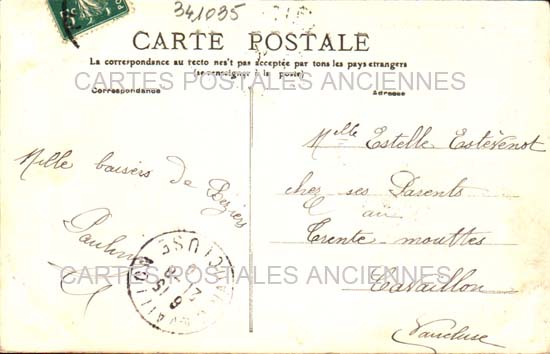 341035
CARTE POSTALE
La correspondance au recto n'est pas acceptée par tous les pays étrangers
(se renseigner à la poste)
CARTES POSTALES ANCIENNES
Correspondance
Adresse
Mille baisers de Béziers
Pauline
Melle Estelle Estèvenot
chez ses Parents
au
Trente-mouttes
Cavaillon
Vaucluse
VAUCLUSE
CARTES POSTALES ANCIENNES